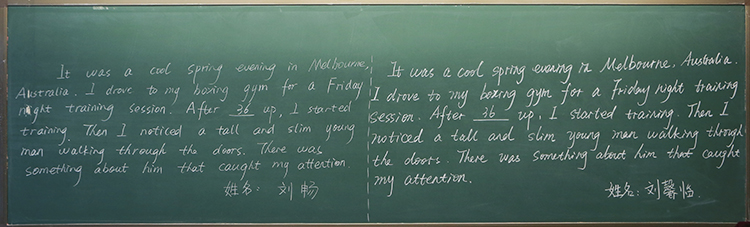 It was a cool spring evening in Melbourne,
Australia. I drove to my boxing gym for a Friday
night training session. After 36 up, I started
training. Then I noticed a tall and slim young
man walking through the doors. There was
something about him that caught my attention.
姓名: 刘畅
It was a cool spring evening in Melbourne, Australia.
I drove to my boxing gym for a Friday night training
session. After 36 up, I started training. Then I
noticed a tall and slim young man walking through
the doors. There was something about him that caught
my attention.
姓名: 刘馨临